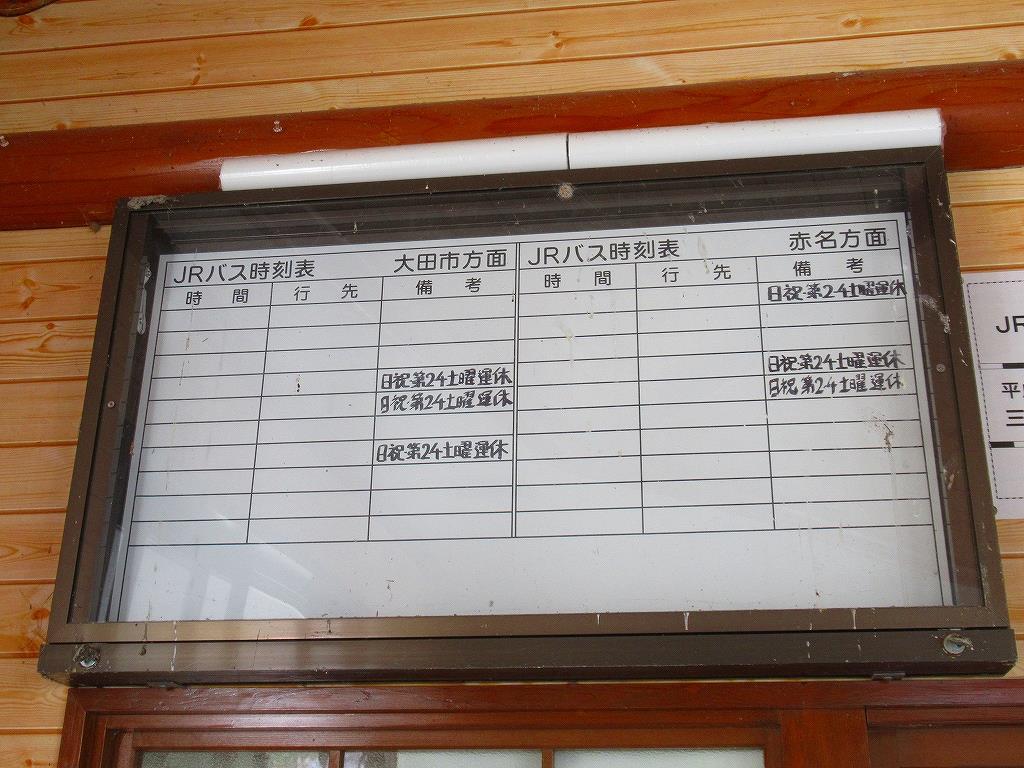 JRバス時刻表 大田市方面
時間 行先 備考
日祝・第24土曜運休
日祝・第24土曜運休
日祝・第24土曜運休
JRバス時刻表 赤名方面
時間 行先 備考
日祝・第24土曜運休
日祝・第24土曜運休
日祝・第24土曜運休
JR
平
三